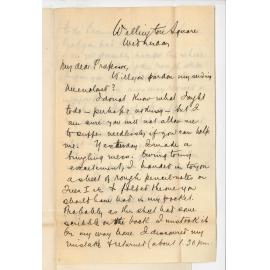 Wellington Square
Wednesday
My dear Professor,
Will you pardon my writing
I do not know what I ought
to do – perhaps nothing – but I
am sure you will not allow me
to suffer needlessly if you can help
me. Yesterday I made a
bungling mess. Owing to my
excitement, I handed in to you
a sheet of rough pencil-notes on
& left the one you
should have had in my pocket.
Probably as the sheet had some
scribble on the back I mistook it
on my way home I discovered my
mistake & returned (about 1.30 pm